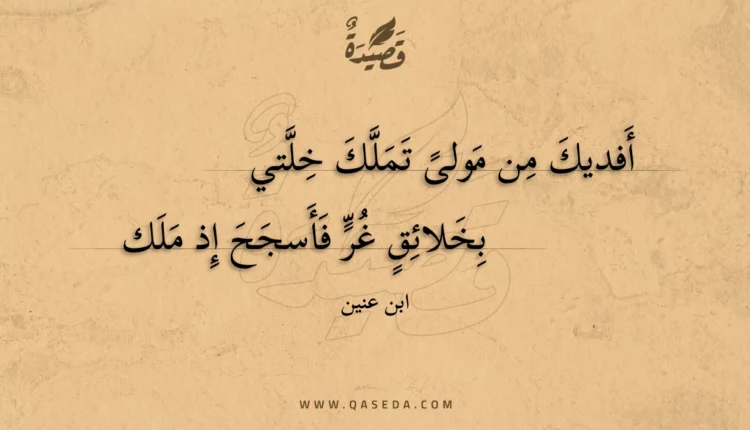 قَصِيْدَةٌ
أَفديكَ مِن مَولىً تَمَلَّكَ خِلَّتي
بِخَلائِقٍ غُرٍّ فَأَسجَحَ إِذ مَلَك
ابن عنين
WWW.QASEDA.COM